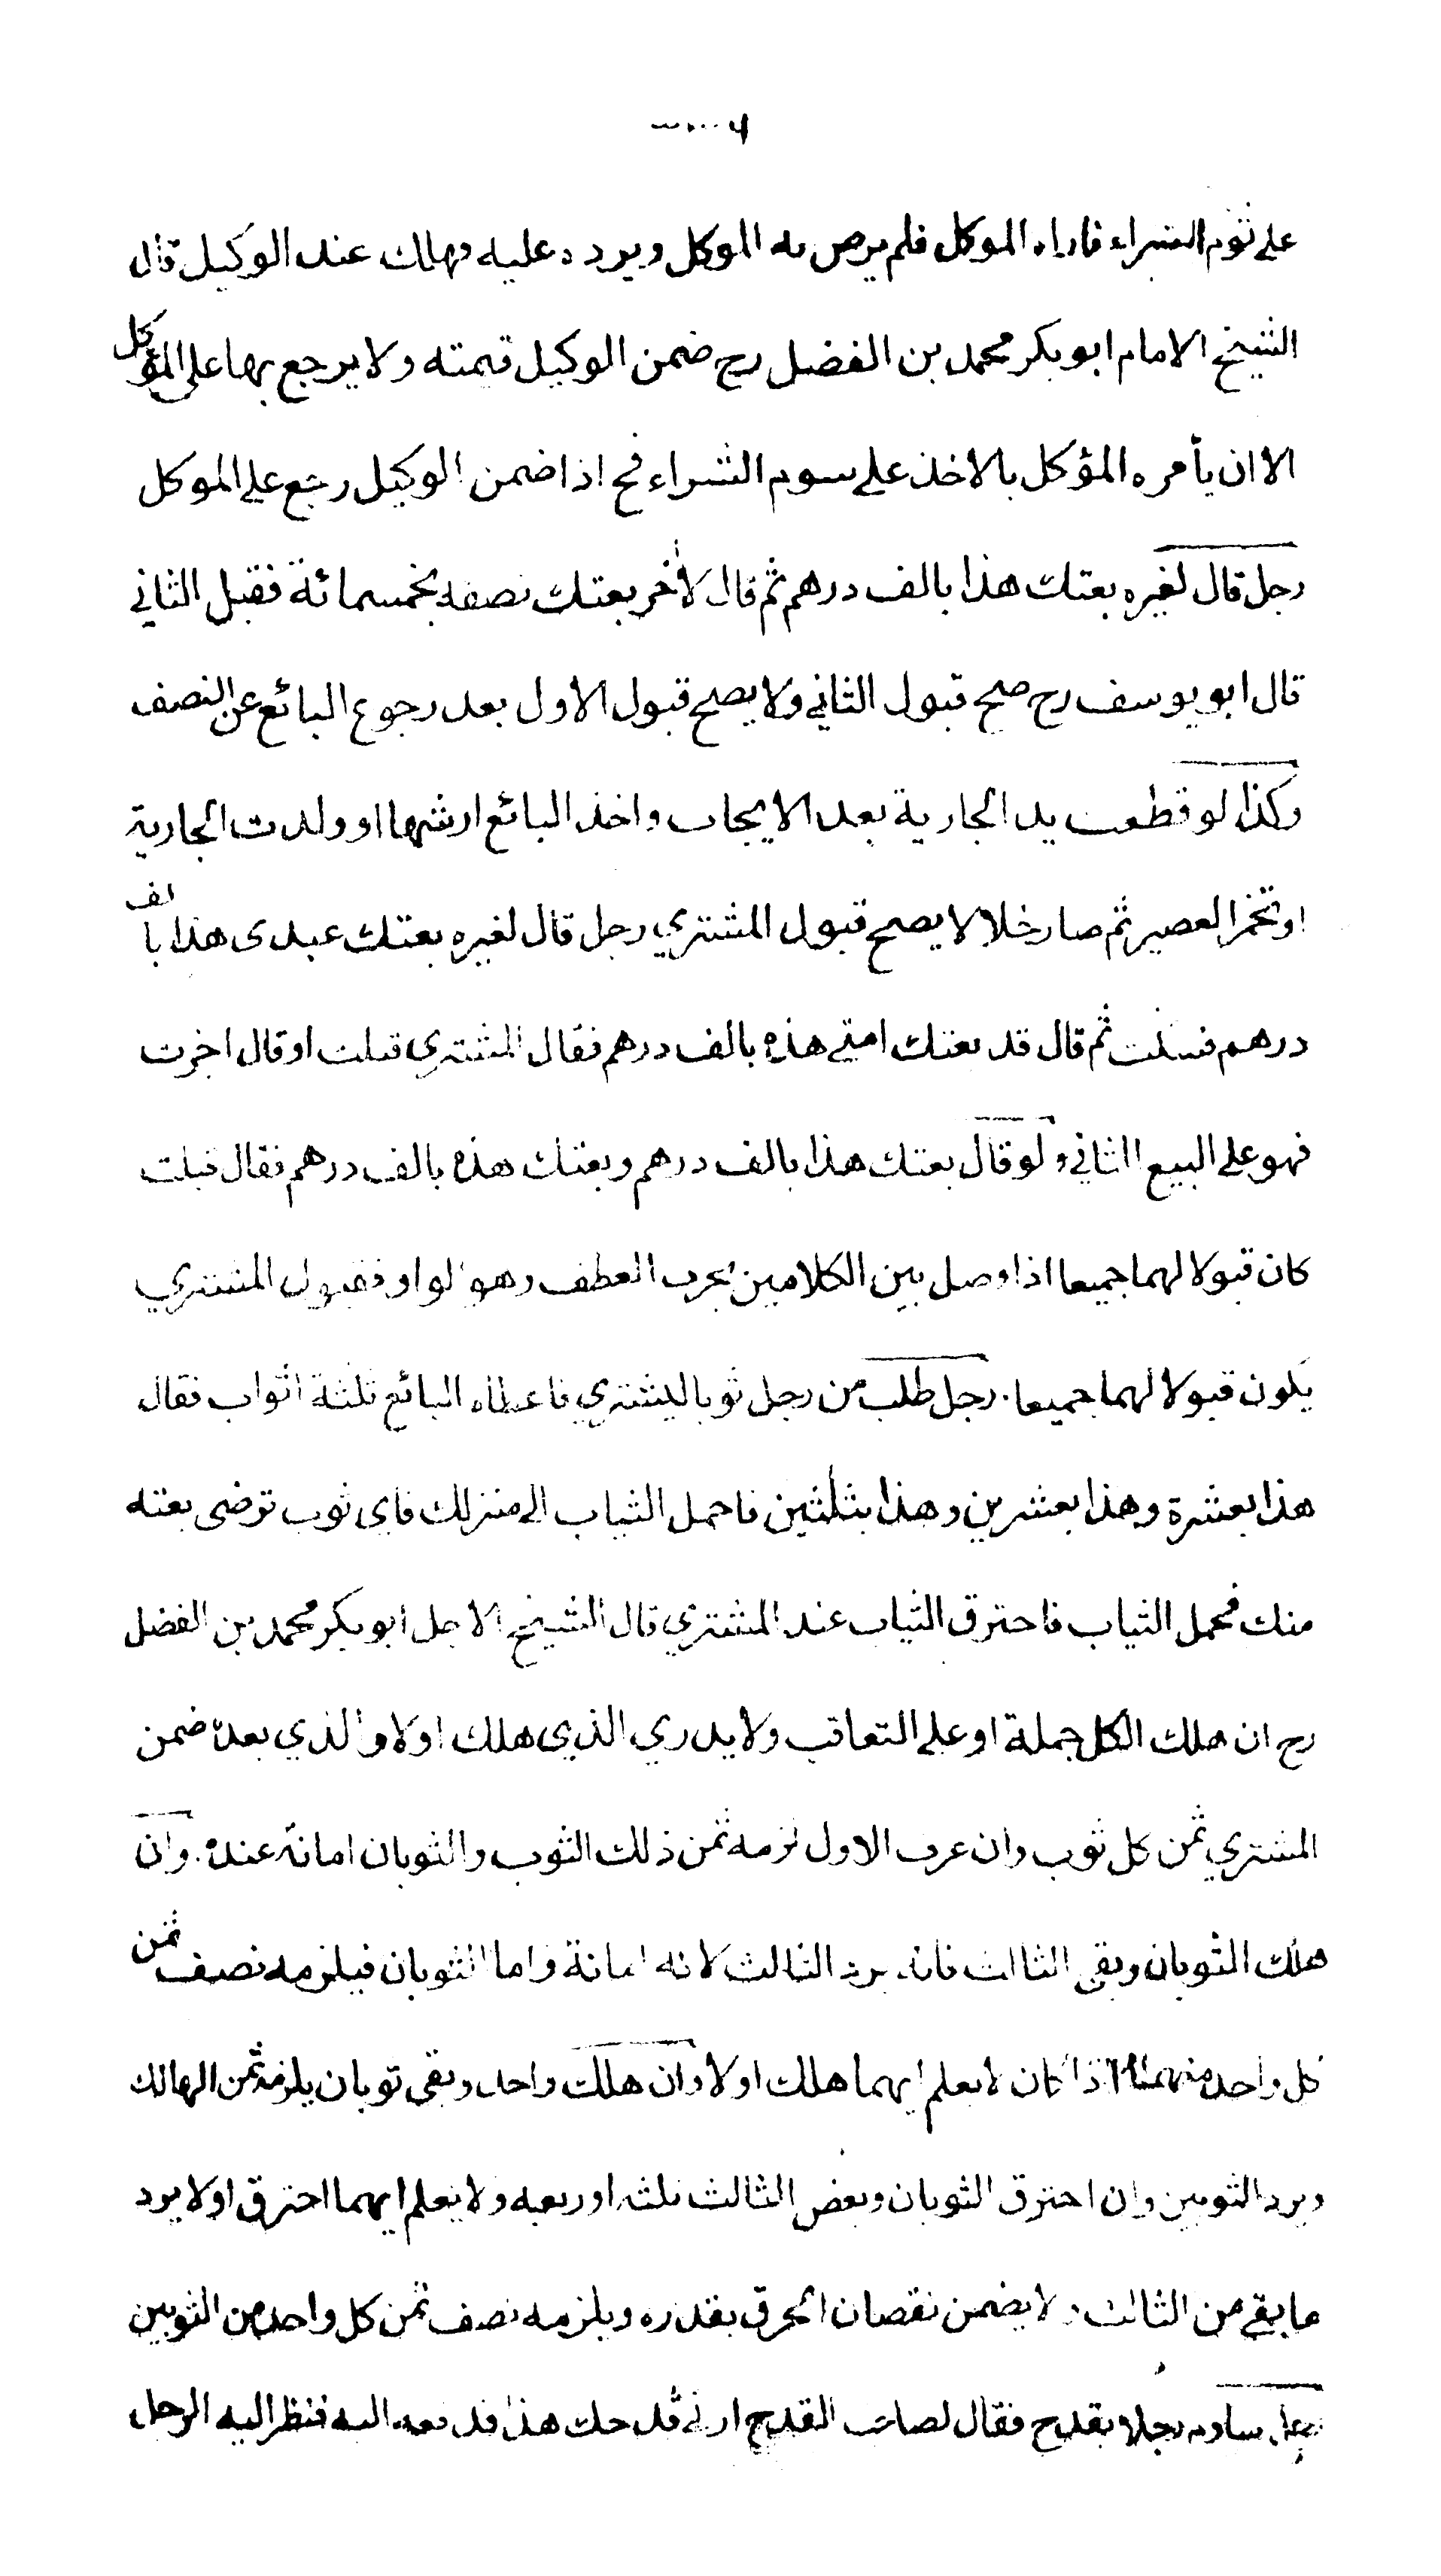 على سوم الشراء فاراه الموكل فلم يرض به الموكل ويرده عليه فهلك عند الوكيل قال
الشيخ الامام ابو بكر محمد بن الفضل رح ضمن الوكيل قيمته ولا يرجع بها على المؤكل
الا ان يأمره المؤكل بالاخذ على سوم الشراء فح اذا ضمن الوكيل رجع على الموكل
رجل قال لغيره بعتك هذا بالف درهم ثم قال لآخر بعتك نصفه بخمسمائة فقبل الثاني
قال ابو يوسف رح صح قبول الثاني ولا يصح قبول الاول بعد رجوع البائع عن النصف
وكذا لو قطعت يد الجارية بعد الايجاب واخذ البائع ارشها او ولدت الجارية
او تخمر العصير ثم صار خلا لا يصح قبول المشتري رجل قال لغيره بعتك عبدى هذا بالف
درهم فسكت ثم قال قد بعتك امتي هذه بالف درهم فقال المشتري قبلت او قال اخرت
فهو على البيع الثاني ولو قال بعتك هذا بالف درهم وبعتك هذه بالف درهم فقال قبلت
كان قبولا لهما جميعا اذا وصل بين الكلامين بحرف العطف وهو الواو فقبول المشتري
يكون قبولا لهما جميعا. رجل طلب من رجل ثوبا ليشتري فاعطاه البائع ثلثة اثواب فقال
هذا بعشرة وهذا بعشرين وهذا بثلثين فاحمل الثياب الى منزلك فاى ثوب ترضى بعته
منك فحمل الثياب فاحترق الثياب عند المشتري قال الشيخ الاجل ابو بكر محمد بن الفضل
رح ان هلك الكل جملة او على التعاقب ولا يدري الذي هلك اولا والذي بعده ضمن
المشتري ثمن كل ثوب وان عرف الاول لزمه ثمن ذلك الثوب والثوبان امانة عنده. وان
هلك الثوبان وبقى الثالث فانه يرد الثالث لانه امانة واما الثوبان فيلزمه نصف ثمن
كل واحد منهما اذا كان لا يعلم ايهما هلك اولا وان هلك واحد وبقى ثوبان يلزمه ثمن الهالك
ويرد الثوبين وان احترق الثوبان وبعض الثالث ثلثه او ربعه ولا يعلم ايهما احترق اولا يرد
ما بقي من الثالث ولا يضمن نقصان الحرق بقدره ويلزمه نصف ثمن كل واحد من الثوبين
رجل ساوم رجلا بقدح فقال لصاحب القدح ارني قدحك هذا فدفعه اليه فنظر اليه الرجل